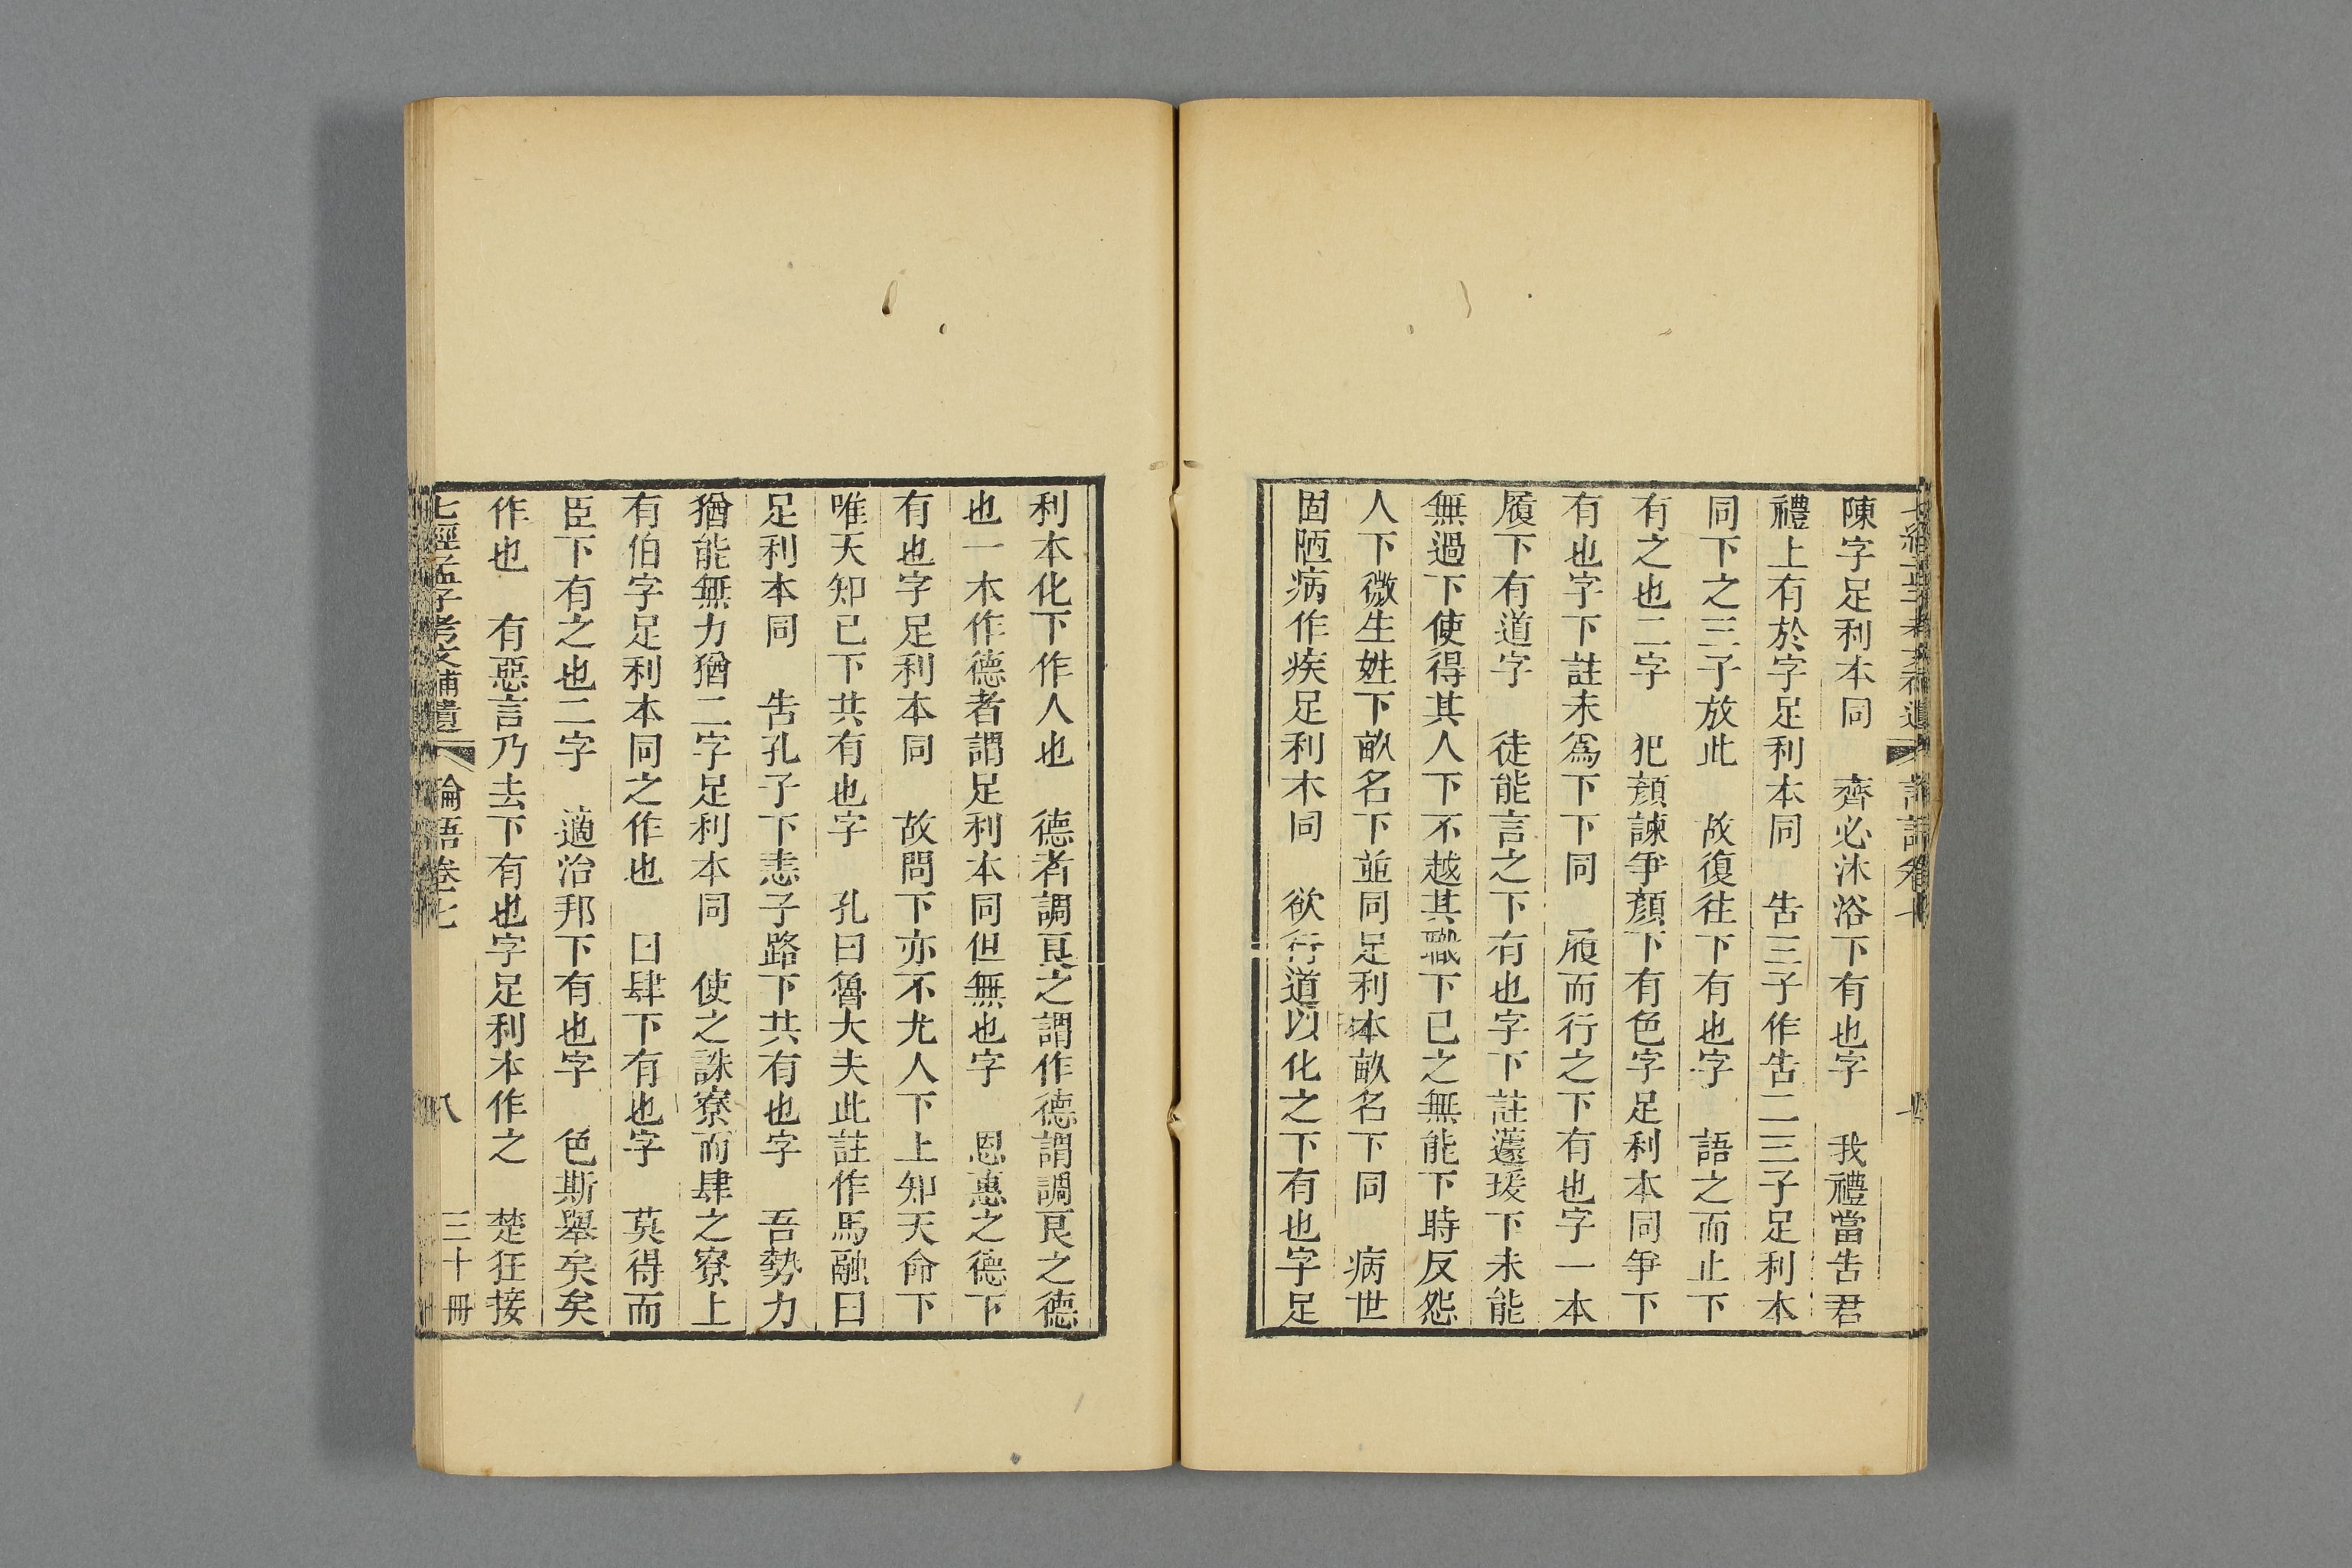 陳字足利本同　齊必沐浴下有也字　我禮當吿君
禮上有於字足利本同　吿三子作吿二三子足利本
同下之三子放此　故復往下有也字　語之而止下
有之也二字　犯顏諫爭顏下有色字足利本同爭下
有也字下註未爲下下同　履而行之下有也字一本
履下有道字　徒能言之下有也字下註蘧瑗下未能
無過下使得其人下不越其職下已之無能下時反怨
人下微生姓下畝名下並同足利本畝名下同　病世
固陋病作疾足利本同　欲行道以化之下有也字足
利本化下作人也　德者調良之謂作德謂調良之德
也一本作德者謂足利本同但無也字　恩惠之德下
有也字足利本同　故問下亦不尤人下上知天命下
唯天知已下共有也字　孔曰魯大夫此註作馬融曰
足利本同　吿孔子下恚子路下共有也字　吾勢力
猶能無力猶二字足利本同　使之誅寮而肆之寮上
有伯字足利本同之作也　曰肆下有也字　莫得而
臣下有之也二字　適治邦下有也字　色斯舉矣矣
作也　有惡言乃去下有也字足利本作之　楚狂接
七經孟子考文補遺　論語卷七　八　三十冊